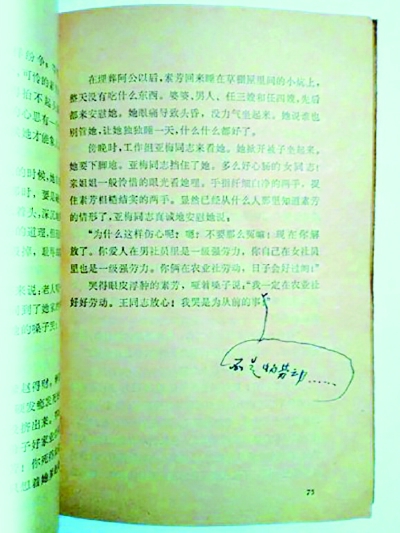 在埋葬阿公以后，素芳回来睡在草棚屋里间的小炕上，
整天没有吃什么东西。婆婆、男人、任三嫂和任四嫂，先后
都来安慰她。她眼痛导致头昏，没力气坐起来。她说谁也
别管她，让她独独睡一天，什么什么都好了。
傍晚时，工作组亚梅同志来看她。她揪开被子坐起来，
她要下脚地。亚梅同志挡住了她。多么好心肠的女同志！
亲姐姐一般怜惜的眼光看她哩。手指纤细白净的两手，捉
住素芳粗糙结实的两手。显然已经从什么人那里知道素芳
的情形了，亚梅同志真诚地安慰她说：
“为什么这样伤心呢？嗯！不要那么冤嘛！现在你解
放了。你爱人在男社员里是一级强劳力，你自己在女社员
里也是一级强劳力。你俩在农业社劳动，日子会好过的！”
哭得眼皮浮肿的素芳，哑着嗓子说：“我一定在农业社
好好劳动。王同志放心！我哭是为从前的事
不是为劳动……
75